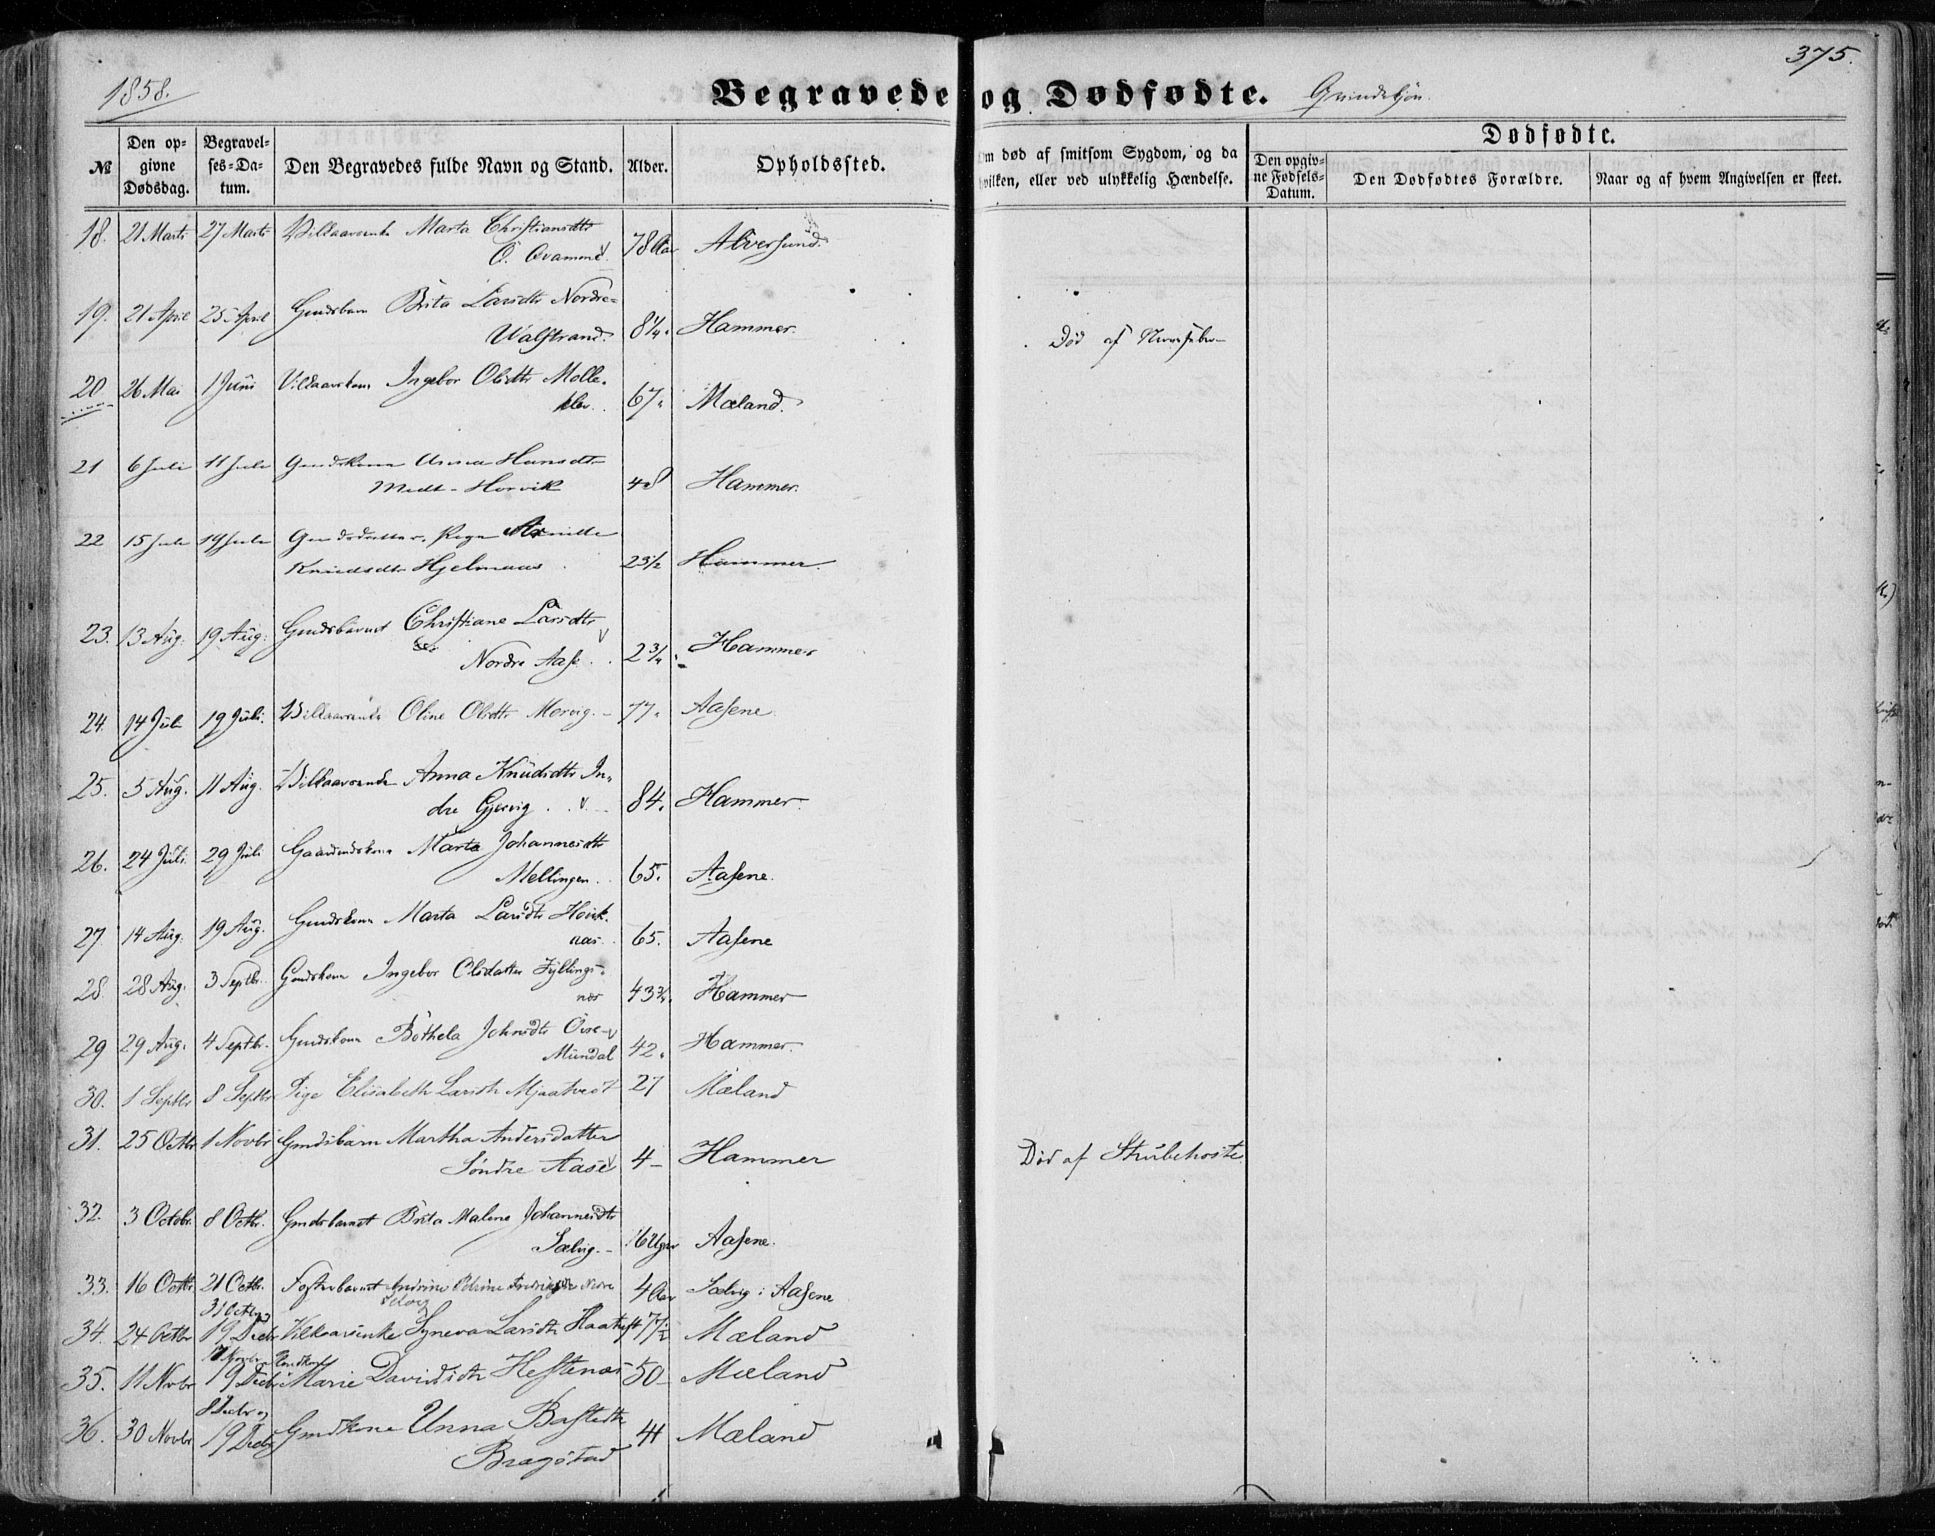 375.
1858.
Begravede og Dødfødte. Qvindekjön.
Dødfødte.
№ Den opgivne Dødsdag. Begravelses-Datum. Den Begravedes fulde Navn og Stand. Alder. Opholdssted. Om død af smitsom Sygdom, og da hvilken, eller ved ulykkelig Hændelse. Den opgivne Fødsels-Datum. Den Dødfødtes Forældre. Naar og af hvem Angivelsen er skeet.
18. 21 Marts 27 Marts Vilkaarsenke Marta Christiansdtr
Ö. Qvamme 78 Aar Alversund.
19. 21 April 25 April Gmdsbarn Brita Larsdtr Nordre-
Walstrand. 8¼. Hammer. Död af Nervefeber
20 26 Mai 1 Juni Vilkaarskone Ingebor Olsdtr Molle-
klev. 67. Mæland.
21 6 Juli 11 Juli Gmdskone Anna Hansdtr
Midt-Horvik 48 Hammer.
22 15 Juli 19 Juli Gmdsdatter, Pige
Knudsdtr Hjelmaas. 23½ Hammer.
23. 13 Aug. 19 Aug. Gmdsbarnet Christiane Larsdtr
Nordre Aase. 2¾. Hammer
24. 14 Juli 19 Juli. Vilkaarsenke Oline Olsdtr Morvig. 77. Aasene
25. 5 Aug. 11 Aug. Vilkaarsenke Anna Knudsdtr In-
dre Gjervig. 84. Hammer.
26. 24 Juli. 29 Juli Gaardmdskone Marta Johannesdtr
Mellingen. 65. Aasene.
27. 14 Aug. 19 Aug. Gmdskone Marta Larsdtr Höisk-
aas. 65. Aasene
28. 28 Aug. 3 Septbr. Gmdskone Ingebor Olsdatter Fyllings-
næs 43¾. Hammer
29 29 Aug. 4 Septbr. Gmdskone Böthela Johnsdtr Övre-
Mundal 42. Hammer.
30. 1 Septbr 8 Septbr Pige Elisabeth Larsdtr Mjaatvedt 27 Mæland
31. 25 Octbr 1 Novbr Gmdsbarn Martha Andersdatter
Söndre Aase 4 Hammer Död af Strubehoste
32. 3 Octobr. 8 Octbr. Gmdsbarnet Brita Malene Johannesdtr
Sælvig. 16 Uger Aasene.
33. 16 Octbr 21 Octbr. Fosterbarnet Andrine Oline Fredriksdtr Nedre
4 Aar Sælvig i Aasene
31 Octbr og
34. 24 Octbr 19 Decbr Vilkaarsenke Synneva Larsdtr Haatuft 77½ Mæland
17 Novbr og
35. 11 Novbr 19 Decbr Marie Davidsdtr Hestenæs 50 Mæland
8 Decbr og
36. 30 Novbr 19 Decbr Gmdkone Unna Bastedtr
Bragstad 41 Mæland